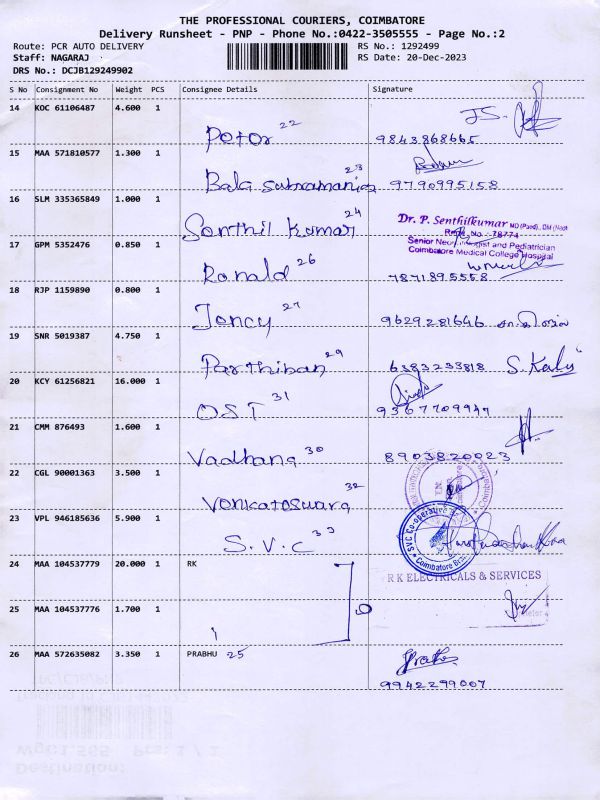 THE PROFESSIONAL COURIERS, COIMBATORE
Delivery Runsheet - PNP - Phone No.:0422-3505555 - Page No.:2
Route: PCR AUTO DELIVERY RS No.: 1292499
Staff: NAGARAJ RS Date: 20-Dec-2023
DRS No.: DCJB129249902
S No Consignment No Weight PCS Consignee Details Signature
14 KOC 61106487 4.600 1 Petor 22 J S.
9843868665
15 MAA 571810577 1.300 1 Bala subramaniam 23
9790995158
16 SLM 335365849 1.000 1 Senthil kumar 24 Dr. P. Senthilkumar MD (Paed)., DM (Neo)
Reg. No. 78774
Senior Neonatologist and Pediatrician
Coimbatore Medical College Hospital
17 GPM 5352476 0.850 1 Ronald 26
7871895558
18 RJP 1159890 0.800 1 Jency 27 9629281646
19 SNR 5019387 4.750 1 Parthiban 29 6383233818 S. Kaly
20 KCY 61256821 16.000 1 OST 31
9367709947
21 CMM 876493 1.600 1 Vadhana 30 8903820023
22 CGL 90001363 3.500 1 Venkateswara 32
23 VPL 946185636 5.900 1 S.V.C 33 SVC Co-operative
Coimbatore
24 MAA 104537779 20.000 1 RK R K ELECTRICALS & SERVICES
25 MAA 104537776 1.700 1
26 MAA 572635082 3.350 1 PRABHU 25
9942299007